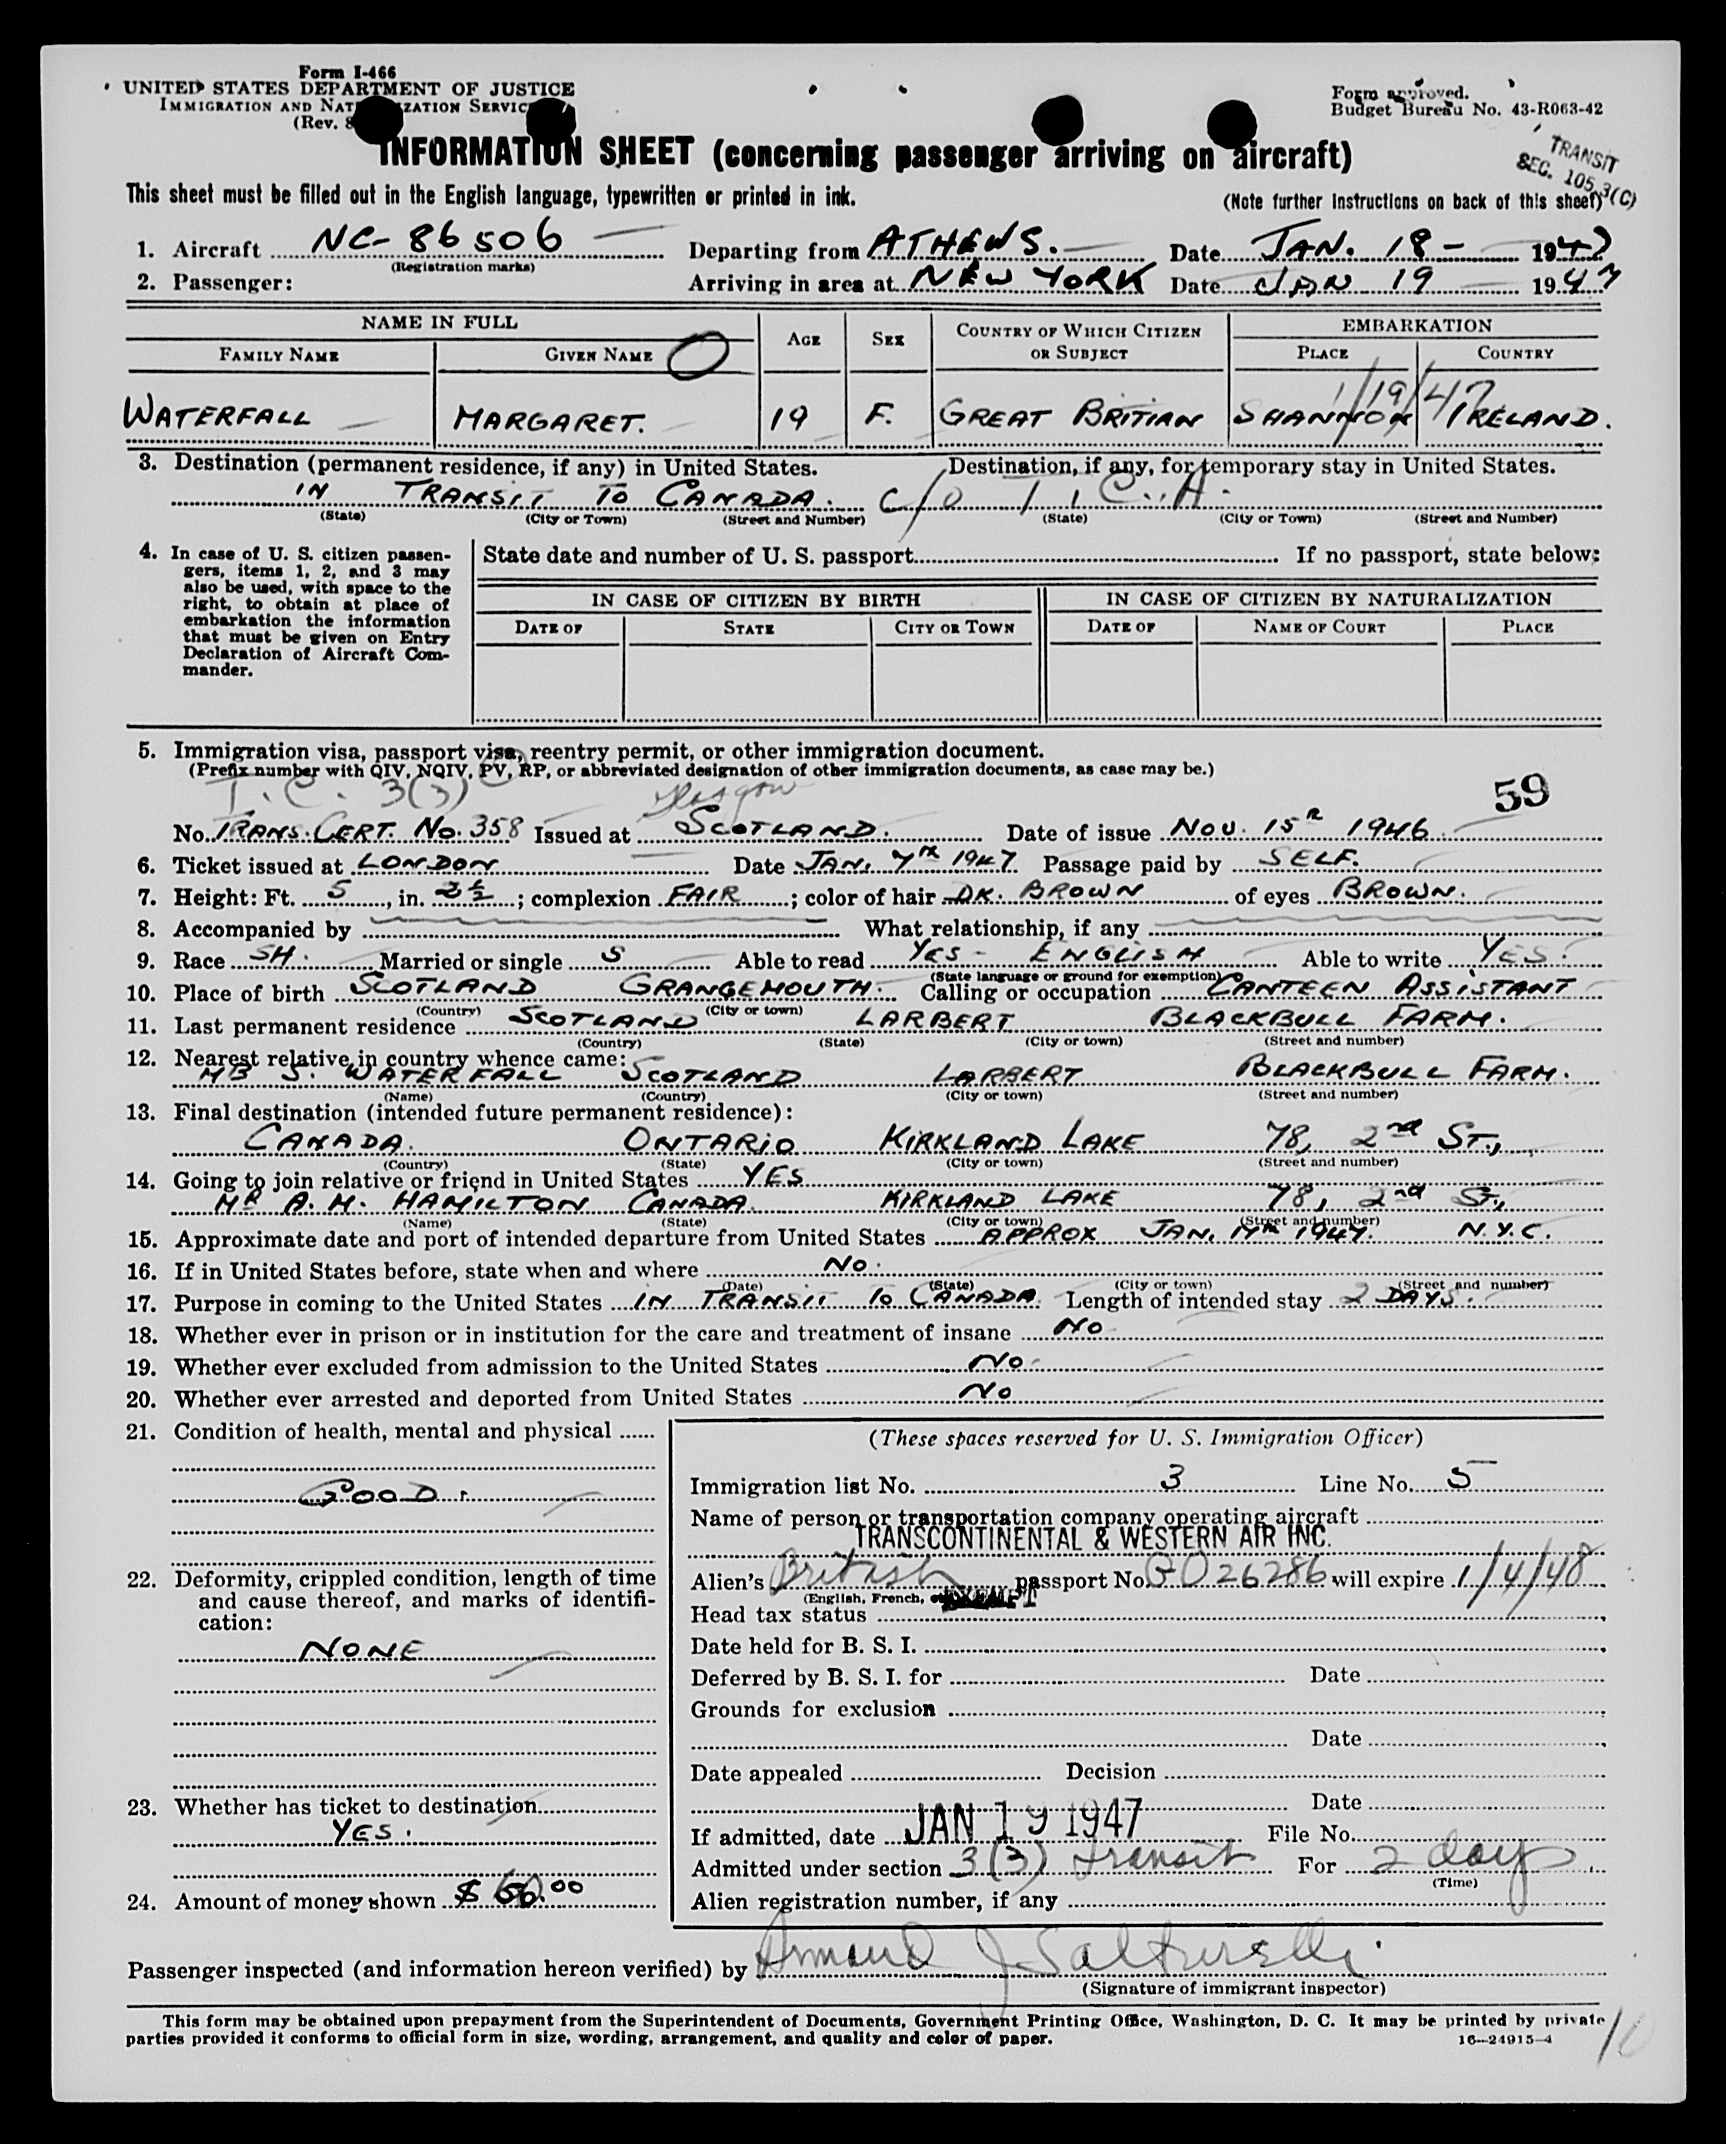 Form I-466
UNITED STATES DEPARTMENT OF JUSTICE
IMMIGRATION AND NAT ZATION SERVIC
(Rev. 8
Form approved.
Budget Bureau No. 43-R063-42
INFORMATION SHEET (concerning passenger arriving on aircraft)
TRANSIT
SEC. 105.3(C)
This sheet must be filled out in the English language, typewritten or printed in ink.
(Note further instructions on back of this sheet)
1. Aircraft NC-86506 Departing from ATHENS. Date JAN. 18- 1947
(Registration marks)
2. Passenger: Arriving in area at NEW YORK Date JAN 19 1947
NAME IN FULL AGE SEX COUNTRY OF WHICH CITIZEN OR SUBJECT EMBARKATION
FAMILY NAME GIVEN NAME PLACE COUNTRY
1/19/47
WATERFALL MARGARET. 19 F. GREAT BRITIAN SHANNON IRELAND.
3. Destination (permanent residence, if any) in United States. Destination, if any, for temporary stay in United States.
IN TRANSIT TO CANADA. c/o
(State) (City or Town) (Street and Number) (State) (City or Town) (Street and Number)
4. In case of U. S. citizen passen-
gers, items 1, 2, and 3 may
also be used, with space to the
right, to obtain at place of
embarkation the information
that must be given on Entry
Declaration of Aircraft Com-
mander.
State date and number of U. S. passport If no passport, state below:
IN CASE OF CITIZEN BY BIRTH IN CASE OF CITIZEN BY NATURALIZATION
DATE OF STATE CITY OR TOWN DATE OF NAME OF COURT PLACE
5. Immigration visa, passport visa, reentry permit, or other immigration document.
(Prefix number with QIV, NQIV, PV, RP, or abbreviated designation of other immigration documents, as case may be.)
T. C. 3(3) Glasgow 59
No. TRANS. CERT. No. 358 Issued at SCOTLAND. Date of issue NOV. 15th 1946
6. Ticket issued at LONDON Date JAN. 7th 1947 Passage paid by SELF.
7. Height: Ft. 5, in. 2½; complexion FAIR; color of hair DK. BROWN of eyes BROWN.
8. Accompanied by What relationship, if any
9. Race SH. Married or single S Able to read YES - ENGLISH Able to write YES.
(State language or ground for exemption)
10. Place of birth SCOTLAND GRANGEMOUTH. Calling or occupation CANTEEN ASSISTANT
(Country) (City or town)
11. Last permanent residence SCOTLAND LARBERT BLACKBULL FARM.
(Country) (State) (City or town) (Street and number)
12. Nearest relative in country whence came:
MR J. WATERFALL SCOTLAND LARBERT BLACKBULL FARM.
(Name) (Country) (City or town) (Street and number)
13. Final destination (intended future permanent residence):
CANADA. ONTARIO KIRKLAND LAKE 78, 2nd ST.,
(Country) (State) (City or town) (Street and number)
14. Going to join relative or friend in United States YES
MR A. M. HAMILTON CANADA. KIRKLAND LAKE 78, 2nd ST.,
(Name) (State) (City or town) (Street and number)
15. Approximate date and port of intended departure from United States APPROX JAN. 17th 1947. N.Y.C.
16. If in United States before, state when and where No.
(Date) (State) (City or town) (Street and number)
17. Purpose in coming to the United States IN TRANSIT To CANADA. Length of intended stay 2 DAYS.
18. Whether ever in prison or in institution for the care and treatment of insane No
19. Whether ever excluded from admission to the United States No.
20. Whether ever arrested and deported from United States No
21. Condition of health, mental and physical
GOOD.
22. Deformity, crippled condition, length of time
and cause thereof, and marks of identifi-
cation:
NONE
23. Whether has ticket to destination
YES.
24. Amount of money shown $ 60.00
(These spaces reserved for U. S. Immigration Officer)
Immigration list No. 3 Line No. 5
Name of person or transportation company operating aircraft
TRANSCONTINENTAL & WESTERN AIR INC.
Alien's British passport No. GO 26286 will expire 1/4/48
(English, French, EXEMPT
Head tax status
Date held for B. S. I.
Deferred by B. S. I. for Date
Grounds for exclusion
Date
Date appealed Decision
Date
If admitted, date JAN 19 1947 File No.
Admitted under section 3(3) transit For 2 days
(Time)
Alien registration number, if any
Passenger inspected (and information hereon verified) by Armand J Salturelli
(Signature of immigrant inspector)
This form may be obtained upon prepayment from the Superintendent of Documents, Government Printing Office, Washington, D. C. It may be printed by private
parties provided it conforms to official form in size, wording, arrangement, and quality and color of paper. 16—24915-4
10